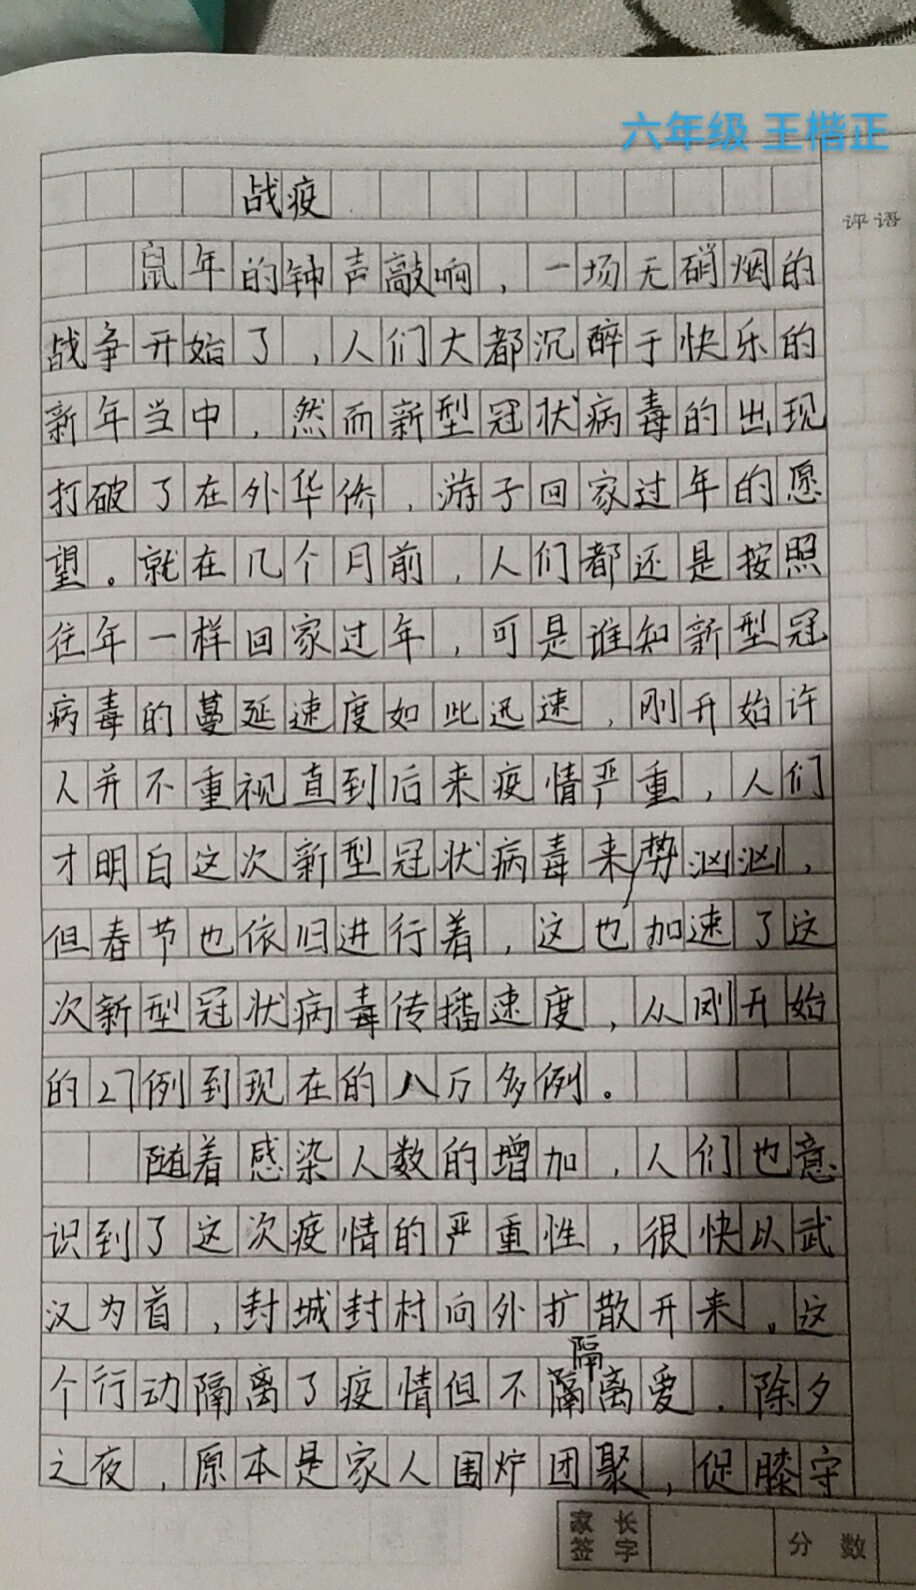 六年级 王楷正
战疫
评语
鼠年的钟声敲响，一场无硝烟的
战争开始了，人们大都沉醉于快乐的
新年当中，然而新型冠状病毒的出现
打破了在外华侨，游子回家过年的愿
望。就在几个月前，人们都还是按照
往年一样回家过年，可是谁知新型冠
病毒的蔓延速度如此迅速，刚开始许
人并不重视直到后来疫情严重，人们
才明白这次新型冠状病毒来势汹汹，
但春节也依旧进行着，这也加速了这
次新型冠状病毒传播速度，从刚开始
的27例到现在的八万多例。
随着感染人数的增加，人们也意
识到了这次疫情的严重性，很快以武
汉为首，封城封村向外扩散开来。这
个行动隔离了疫情但不隔离爱．除夕
之夜，原本是家人围炉团聚，促膝守
家长签字
分数